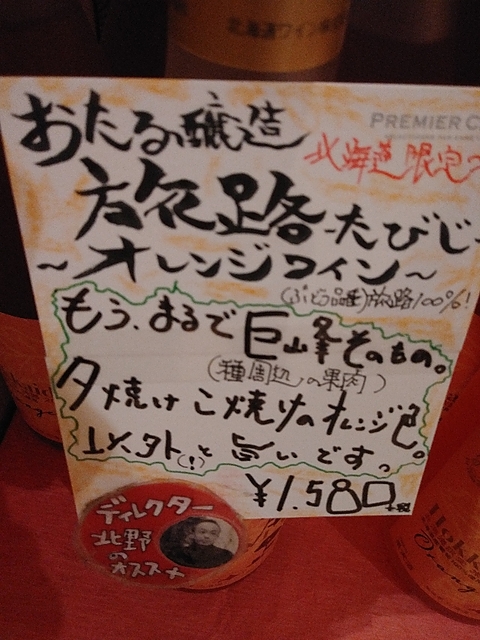 北海道ワイン株式
PREMIER C
おたる醸造
北海道限定
旅路 たびじ
〜オレンジワイン〜
(ぶどう品種)旅路100%!
もう、まるで巨峰そのもの。
(種周辺の果肉)
夕焼けこ焼けのオレンジ色。
以外(!)と旨いですっ。
¥1,580
ディレクター
北野
の
オススメ